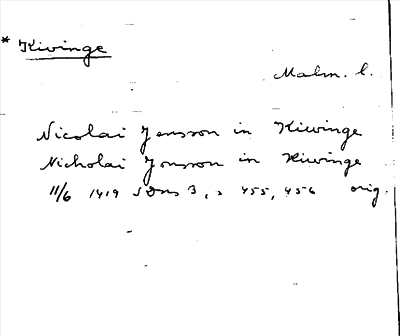 * Kiwinge
Malm. l.
Nicolai Jensson in Kiwinge
Nicholai Jonsson in Kiwinge
11/6 1419 SDns 3, s 455, 456 orig.